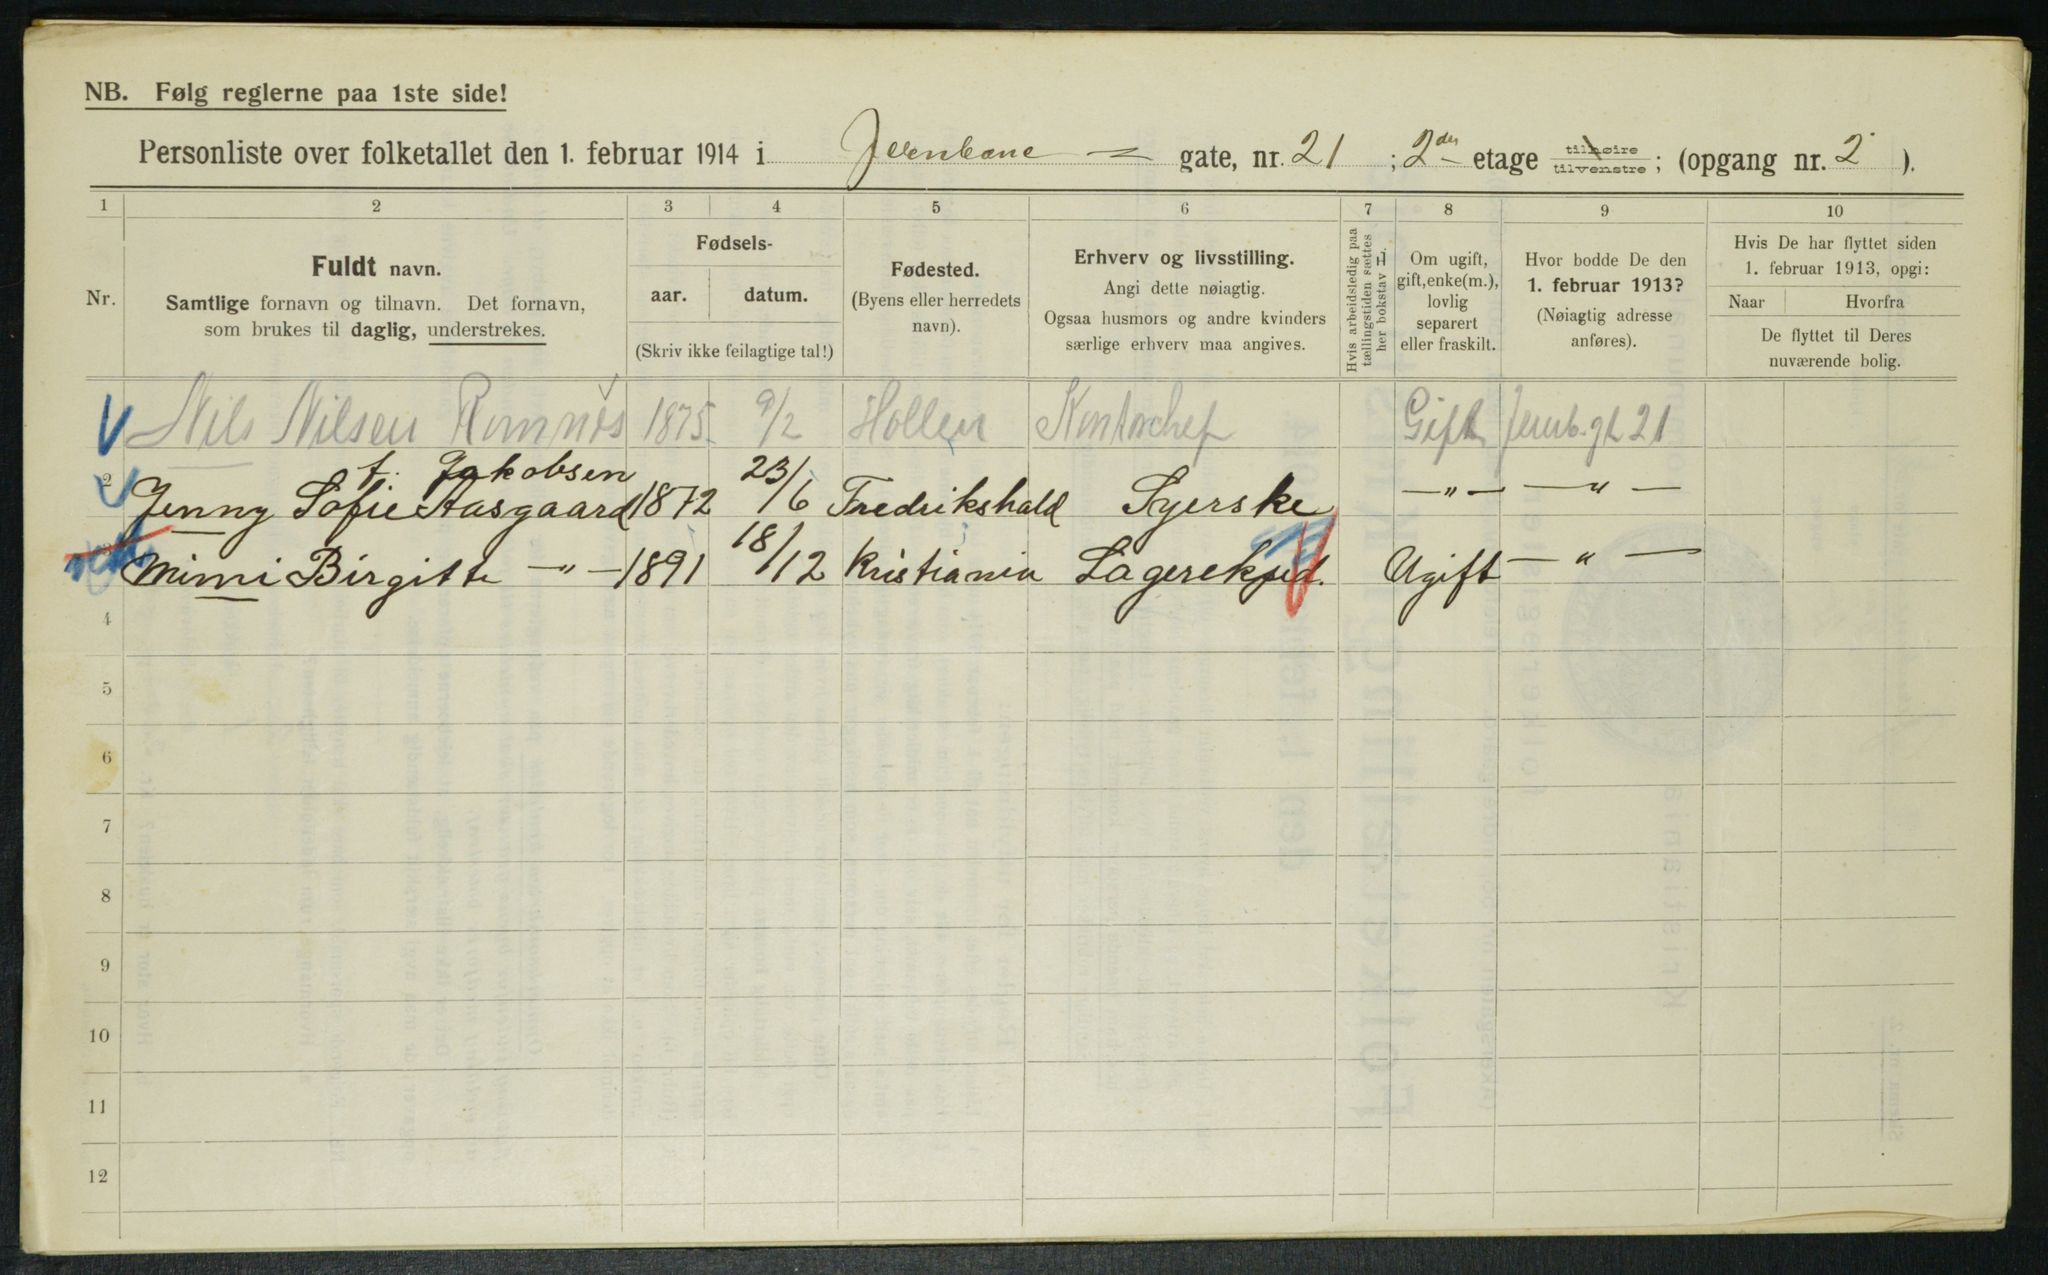 NB. Følg reglerne paa 1ste side!
Personliste over folketallet den 1. februar 1914 i Jernbane gate, nr. 21 ; 2den etage tilhøire tilvenstre ; (opgang nr. 2 ).
1 2 3 4 5 6 7 8 9 10
Nr.
Fuldt navn.
Samtlige fornavn og tilnavn. Det fornavn,
som brukes til daglig, understrekes.
Fødsels-
aar. datum.
(Skriv ikke feilagtige tal!)
Fødested.
(Byens eller herredets
navn).
Erhverv og livsstilling.
Angi dette nøiagtig.
Ogsaa husmors og andre kvinders
særlige erhverv maa angives.
Hvis arbeidsledig paa
tællingstiden sættes
her bokstav L.
Om ugift,
gift, enke(m.),
lovlig
separert
eller fraskilt.
Hvor bodde De den
1. februar 1913?
(Nøiagtig adresse
anføres).
Hvis De har flyttet siden
1. februar 1913, opgi:
Naar Hvorfra
De flyttet til Deres
nuværende bolig.
Nils Nilsen Romnæs 1875 9/2 Hollen Kontorchef Gift Jernb. gt 21
f. Jakobsen
2 Jenny Sofie Aasgaard 1872 23/6 Fredrikshald Syerske —"— —"—
3 Mimi Birgitte —"— 1891 18/12 Kristiania Lagerekped. Ugift —"—
4
5
6
7
8
9
10
11
12